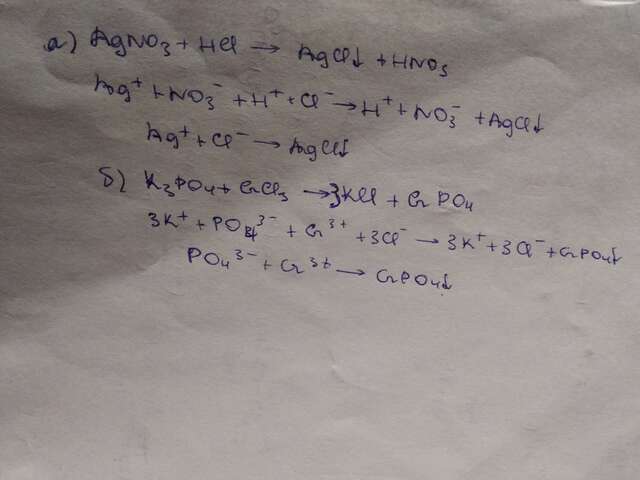 а) AgNO₃ + HCl → AgCl↓ + HNO₃
Ag⁺ + NO₃⁻ + H⁺ + Cl⁻ → H⁺ + NO₃⁻ + AgCl↓
Ag⁺ + Cl⁻ → AgCl↓
б) K₃PO₄ + CrCl₃ → 3KCl + CrPO₄
3K⁺ + PO₄³⁻ + Cr³⁺ + 3Cl⁻ → 3K⁺ + 3Cl⁻ + CrPO₄↓
PO₄³⁻ + Cr³⁺ → CrPO₄↓